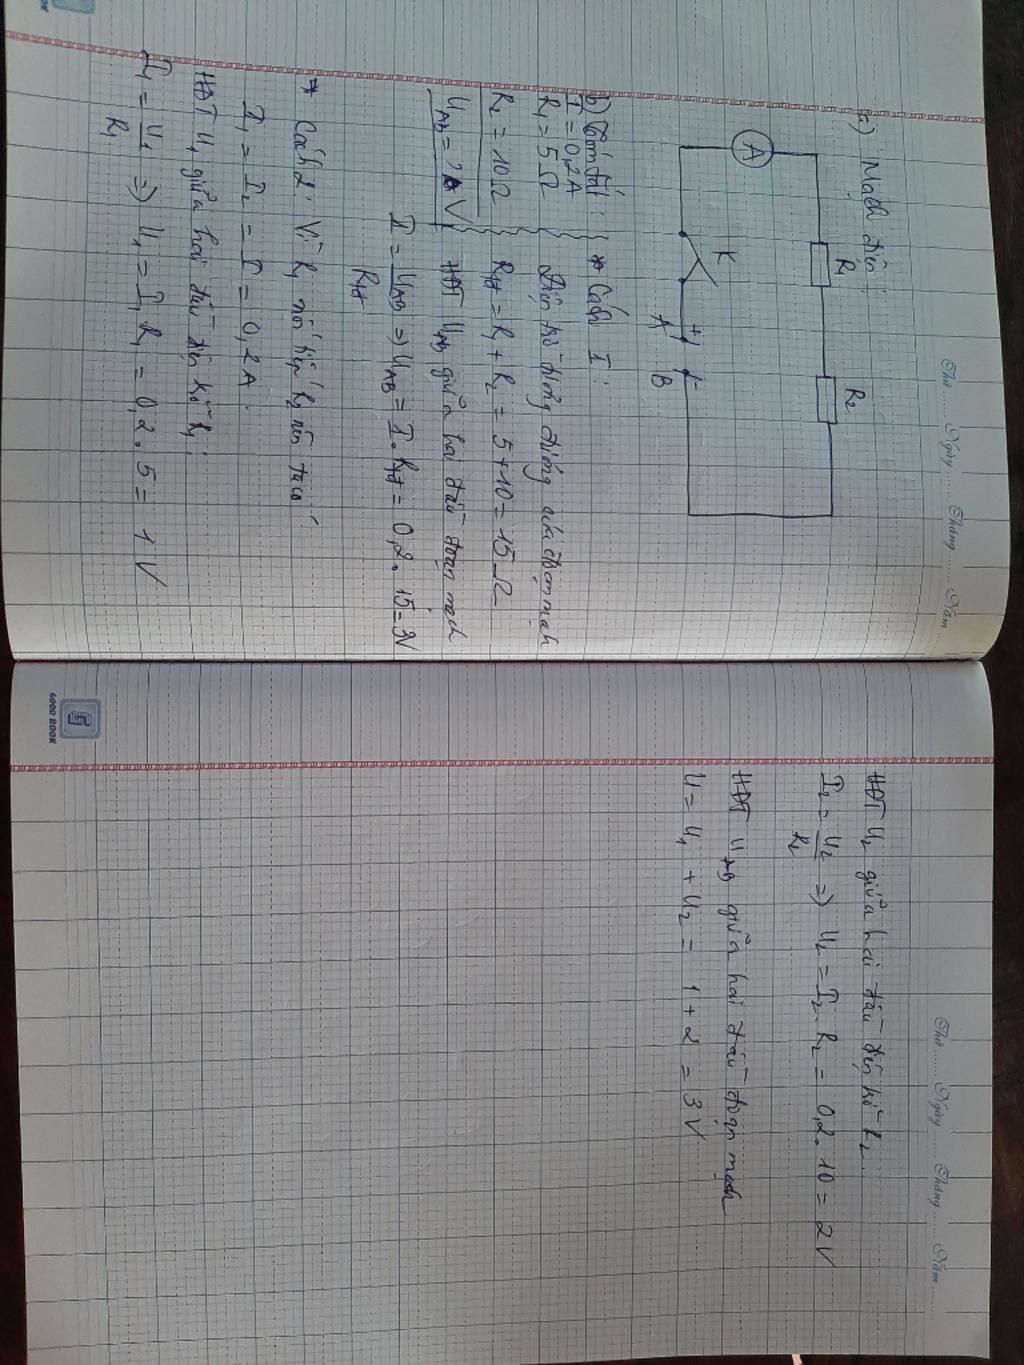 Thứ ....... Ngày ....... Tháng ....... Năm .......
a) Mạch điện:
R1
R2
A
K
+
-
A
B
b) Tóm tắt:
I = 0,2A
R1 = 5Ω
R2 = 10Ω
UAB = ? V
* Cách 1:
Điện trở tương đương của đoạn mạch
Rtđ = R1 + R2 = 5+10 = 15Ω
HĐT UAB giữa hai đầu đoạn mạch
I = UAB/Rtđ => UAB = I.Rtđ = 0,2.15=3V
* Cách 2: Vì R1 nối tiếp R2 nên ta có:
I1 = I2 = I = 0,2A
HĐT U1 giữa hai đầu điện trở R1:
I1 = U1/R1 => U1 = I1 R1 = 0,2.5 = 1V
Thứ ....... Ngày ....... Tháng ....... Năm .......
HĐT U2 giữa hai đầu điện trở R2
I2 = U2/R2 => U2 = I2.R2 = 0,2.10 = 2V
HĐT UAB giữa hai đầu đoạn mạch
U = U1 + U2 = 1+2 = 3V
GOOD BOOK